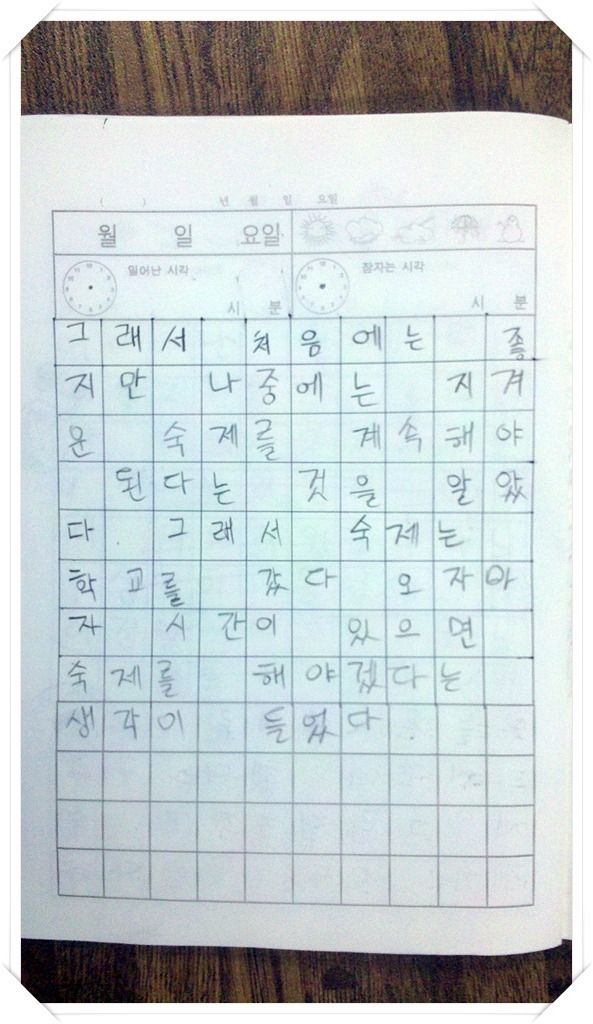 ( ) 년 월 일 요일
월 일 요일
일어난 시각 잠자는 시각
시 분 시 분
그래서 처음에는 좋
지만 나중에는 지겨
운 숙제를 계속해야
된다는 것을 알았
다. 그래서 숙제는
학교를 갔다 오자마
자 시간이 있으면
숙제를 해야겠다는
생각이 들었다.